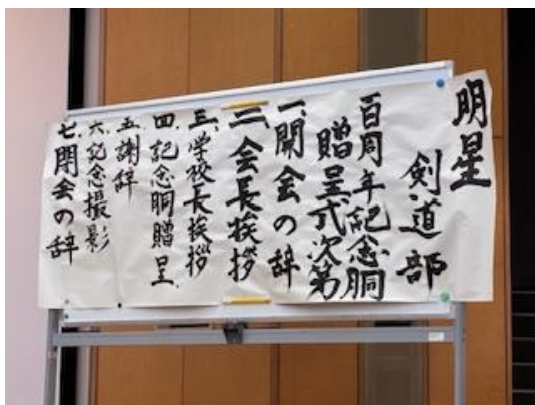 明星
剣道部
百周年記念胴
贈呈式次第
一、開会の辞
二、会長挨拶
三、学校長挨拶
四、記念胴贈呈
五、謝辞
六、記念撮影
七、閉会の辞